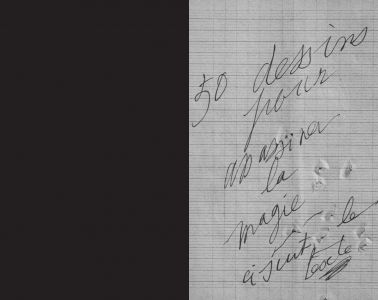 50 dessins
pour
assassiner
la
magie
le
texte